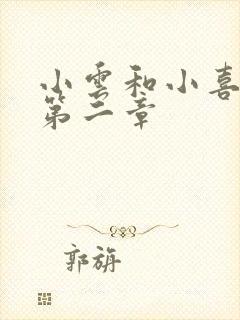 小雲和小喜
第二章
郭旃